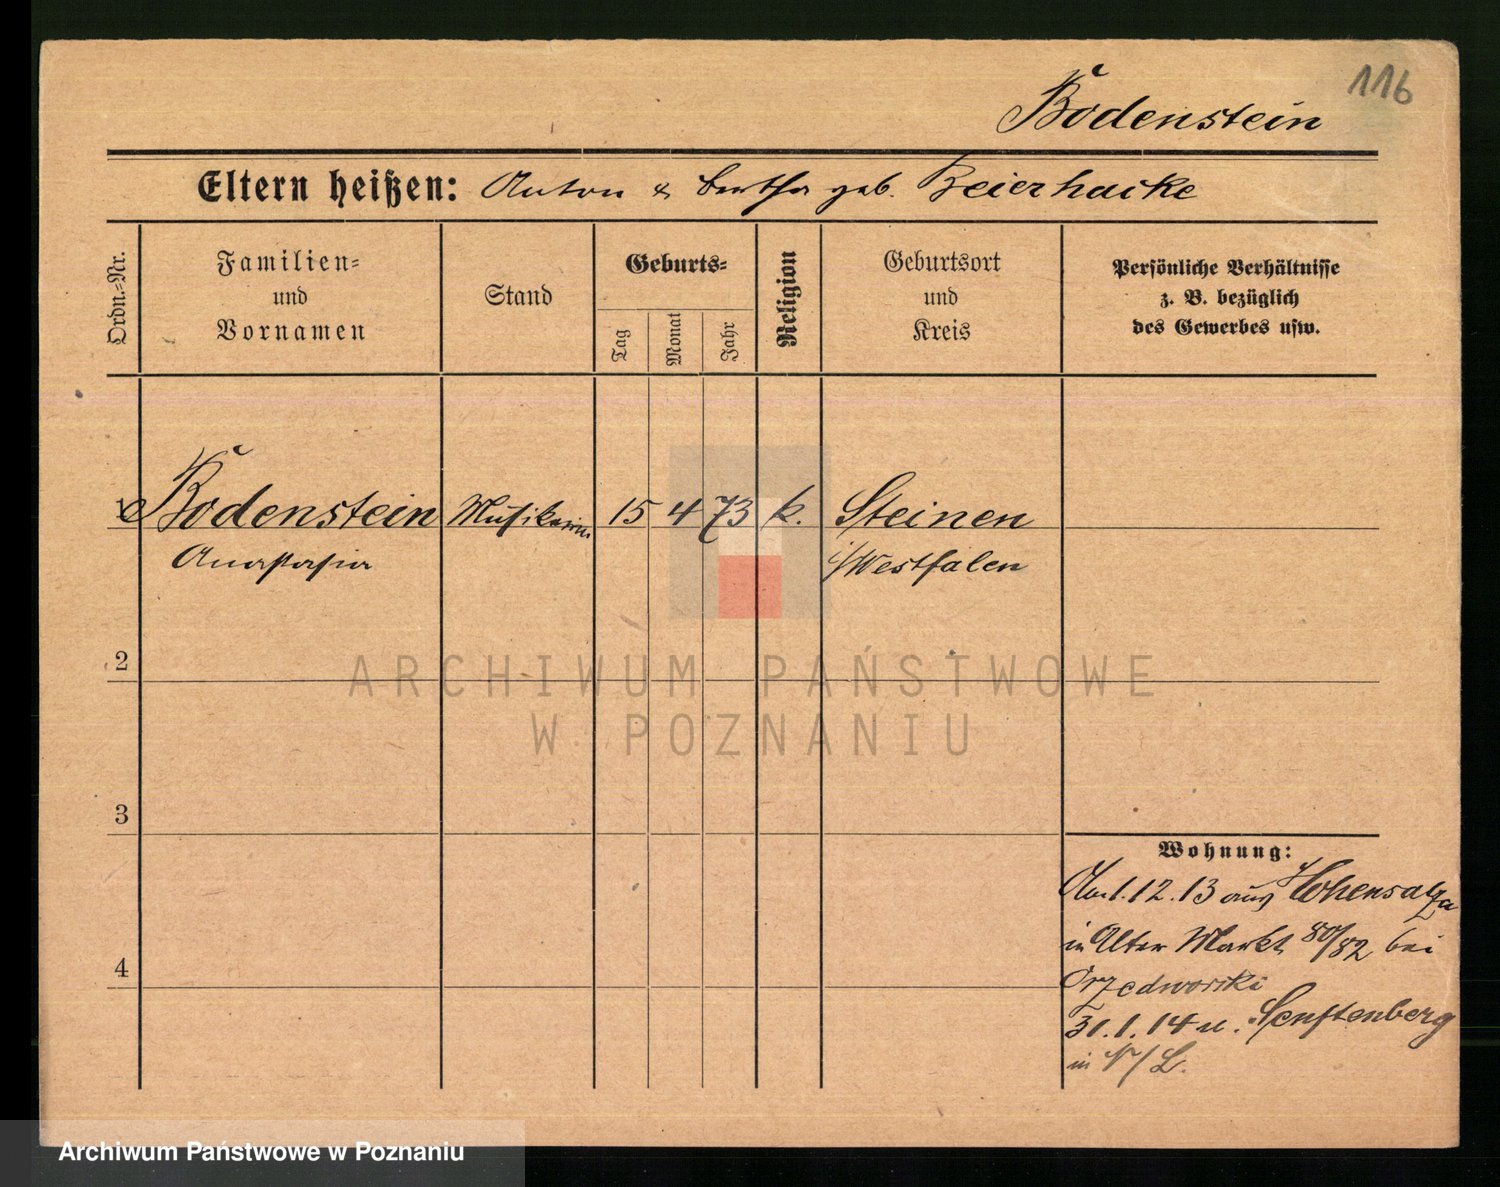 116
Bodenstein
Eltern heißen: Anton & Bertha geb. Beierhacke
Ordn.-Nr.
Familien-
und
Vornamen
Stand
Geburts-
Tag
Monat
Jahr
Religion
Geburtsort
und
Kreis
Persönliche Verhältnisse
z. B. bezüglich
des Gewerbes usw.
1 Bodenstein Musikerin 15 4 73 k. Steinen
Anastasia i/Westfalen
2
3
4
Wohnung:
Am 1.12.13 aus Hohensalza
in Alter Markt 80/82 bei
31.1.14 n. Senftenberg
in N/L.
ARCHIWUM PAŃSTWOWE
W POZNANIU
Archiwum Państwowe w Poznaniu